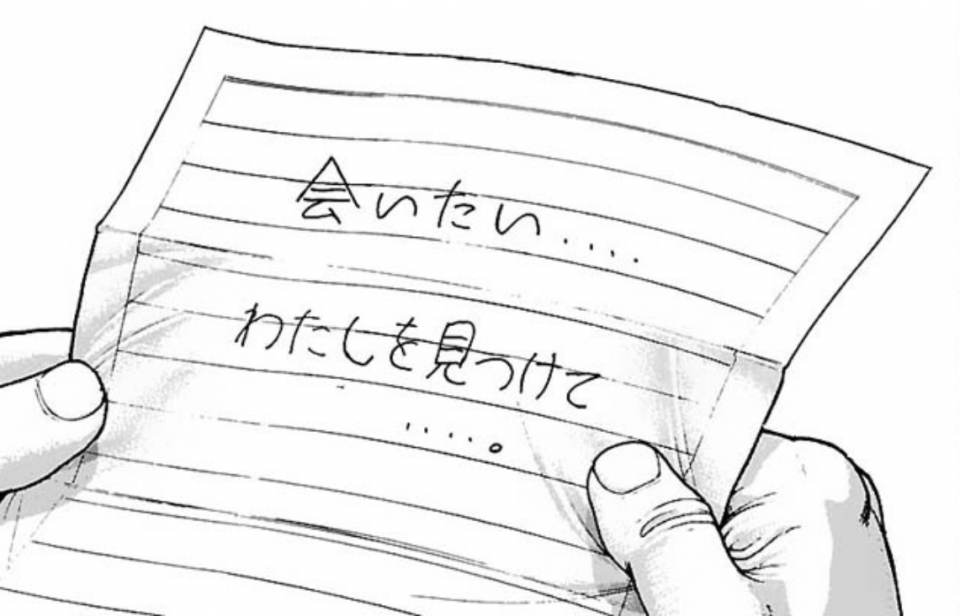 会いたい....
わたしを見つけて
.....。